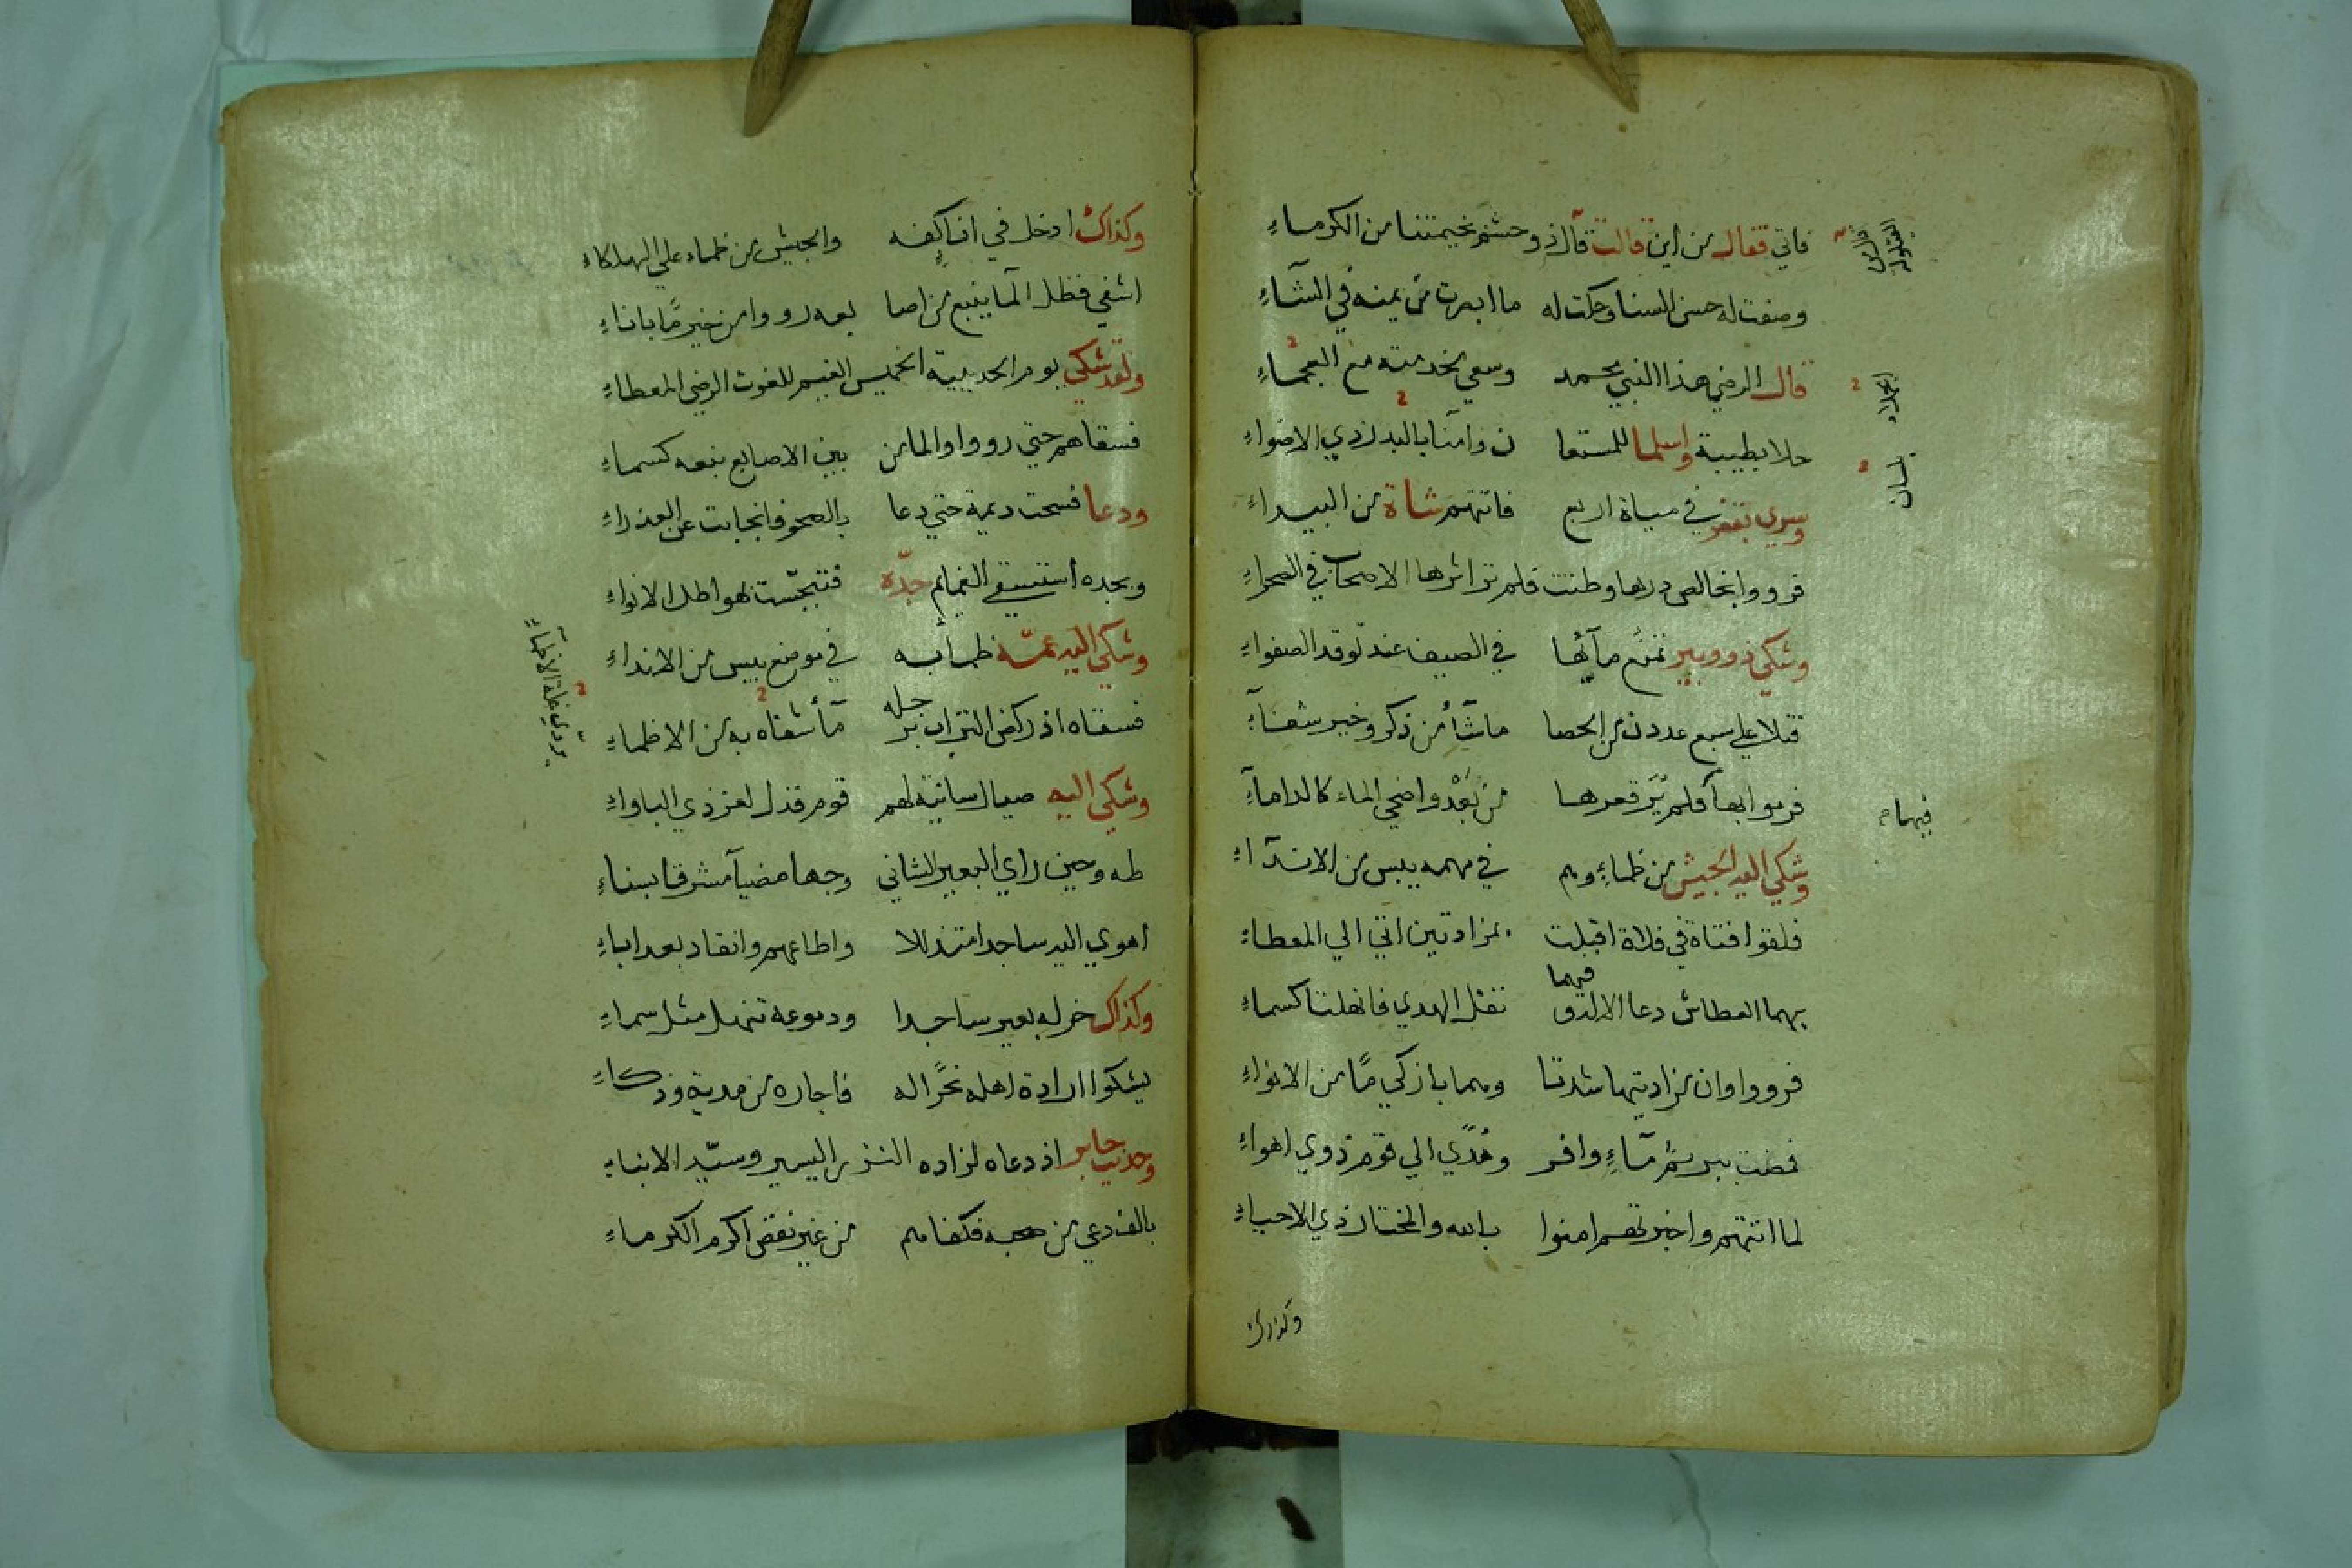 فاتي فقال من اين قالت قال ذو حشم بخيمتنا من الكرماء
وصفت له حسن السنا وحكت له ما ابصرت من يمنه في الشاء
قال الرضي هذا النبي محمد وسعي بخدمته مع العجماء
حلا بطيبة واسلما للمستعا ن وامنا بالبدر ذي الاضواء
وسري بقفر في مياة اربع فاتتهم شاة من البيداء
فرووا بخالص درها وطنت فلم تر اثرها الاصحاب في الصحراء
وشكي ذوو بير تمنع مآئها في الصيف عند توقد الصفواء
فتلا علي سبع عددن من الحصا ماشآ من ذكر وخير شفآء
فرموا بهآ فلم ير قعرها من بعد واضحي الماء كالدامآء
وشكي اليه الجيش من ظماء وهم في مهمه يبس من الاندآء
فلقوا فتاة في فلاة اقبلت بمزادتين اتي الي المعطاء
بهما العطاش دعا الاله وفيهما تفل الهدي فانهلتا كسماء
فرووا وان مزادتيها شدتا وهما بازكي ما من الانواء
فمضت ببر ثم مآء وافر وهدي الي قوم ذوي اهواء
لما اتتهم واخبرتهم امنوا بالله والمختار ذي الاحباء
فيهما
وكذاك
وكذاك ادخل في انا كفه والجيش من ظماء علي الهلكاء
اشفي فظل المآ ينبع من اصا بعه رووا من خير ما باناء
ولقد شكي يوم الحديبية الخميس الغيم للغوث الرضي المعطاء
فسقاهم حتي رووا والما من بين الاصابع نبعه كسماء
ودعا فسحت ديمة حتي دعا بالصحو فانجابت عن العذراء
وبجده استسقي الغمايم جده فتبجست بهواطل الانواء
وشكي اليه عمه ظمأ به في موضع يبس من الانداء
فسقاه اذ ركض التراب برجله مآ شفاه به من الاظماء
وشكي اليه صيال سانية لهم قوم فذل لعز ذي الباواء
طه وحين راي البعير الشاني وجها مضيآ مشرقا بسناء
اهوي اليه ساجدا متذللا واطاعهم وانقاد بعد اباء
وكذاك خر له بعير ساجدا ودموعه تنهل مثل سماء
يشكوا ارادة اهله نحرا له فاجاره من مدية وذكاء
وحديث جابر اذ دعاه لزاده النزر اليسير وسيد الابناء
بالف دعي من صحبه فكفاهم من غير نقص اكرم الكرماء
يروي غلة الاظمآء